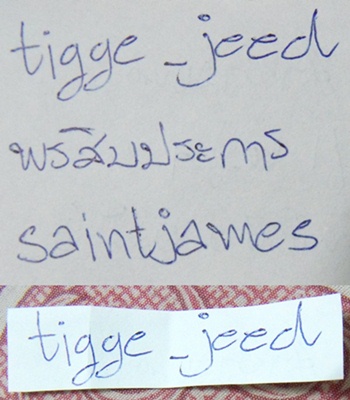 tigge_jeed
พรสิบประการ
saintjames
tigge_jeed